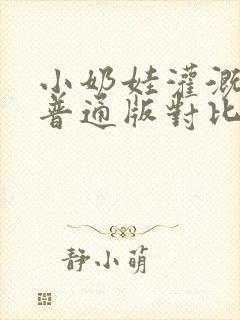 小奶娃灌溉
普通版對比
静小萌